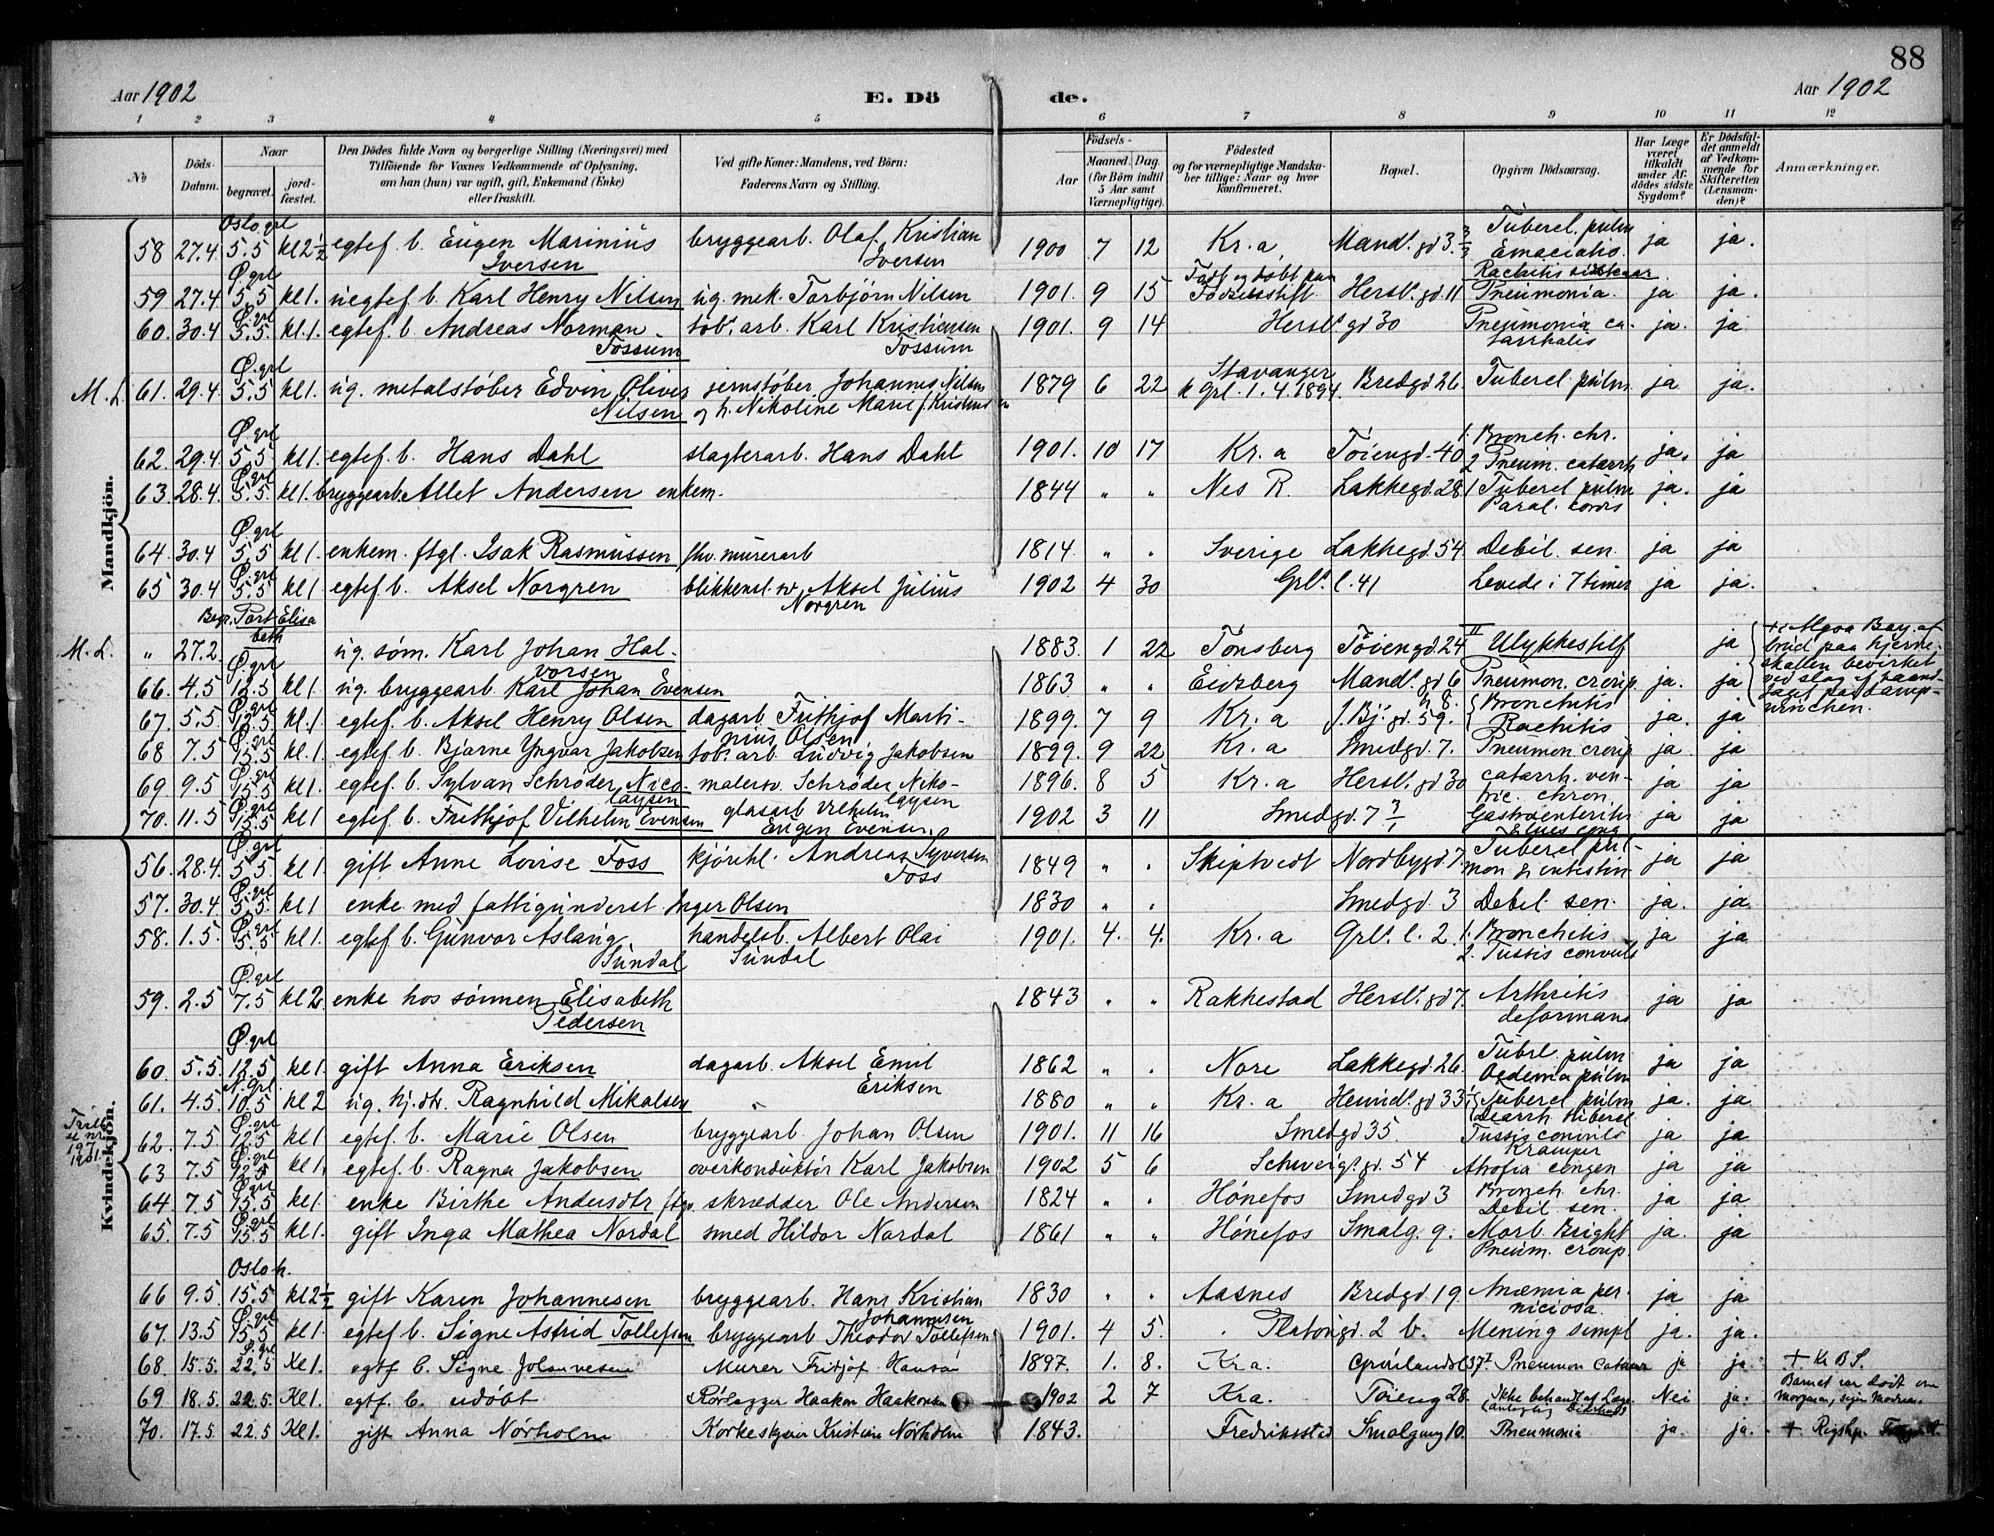 88
Aar 1902 E. Dö de. Aar 1902
1 2 3 4 5 6 7 8 9 10 11 12
No Döds-Datum. Naar begravet. jord-fæstet. Den Dödes fulde Navn og borgerlige Stilling (Næringsvei) med Tilföiende for Voxnes Vedkommende af Oplysning, om han (hun) var ugift, gift, Enkemand (Enke) eller fraskilt. Ved gifte Koner: Mandens, ved Börn: Faderens Navn og Stilling. Födsels- Aar Maaned. Dag. (for Börn indtil 5 Aar samt Værnepligtige). Födested og for værnepligtige Mandskaber tillige: Naar og hvor konfirmeret. Bopæl. Opgiven Dödsaarsag. Har Læge været tilkaldt under Afdödes sidste Sygdom? Er Dödsfaldet anmeldt af Vedkommende for Skifteretten (Lensmanden)? Anmærkninger.
Mandkjön.
58 27.4 Oslo grl 5.5 kl 2½ egtef. b. Eugen Marinius Iversen bryggearb. Olaf Kristian Iversen 1900 7 12 Kr.a Mandls. gd 3. Tubercl. pulm Emaciatio. ja ja.
59 27.4 Ø. grl 5.5 kl 1. uegtef. b. Karl Henry Nilsen ug. mek. Torbjörn Nilsen 1901. 9 15 Födt og døbt paa Födselsstift. Hersl. gd 11 Rachitis Pneumonia. ja ja.
60. 30.4 Ø grl 5.5. kl. 1. egtef. b. Andreas Norman Fossum tob. arb. Karl Kristiansen Fossum 1901. 9 14 Hersl. gd 30 Pneumonia catarrhalis ja. ja
M. L. 61. 29.4 Ø. grl 5.5 kl 1. ug. metalstøber Edvin Oliver Nilsen jernstøber Johannes Nilsen og h. Nikoline Marie f. Kristiansen 1879 6 22 Stavanger k Grl. 1. 4. 1894. Bredgd 26. Tubercl. pulm. ja ja.
62. 29.4 Ø. grl 5.5 kl 1. egtef. b. Hans Dahl slagterarb. Hans Dahl 1901. 10 17 Kr. a Töiengd. 40 1. Bronch. chr. 2 Pneum. catarrh ja. ja
63. 28.4 Ø. grl 5.5. kl 1. bryggearb. Allet Andersen enkem. 1844 " " Nes R. Lakkegd. 28. 1 Tubercl pulm Paral. cordis ja. ja
64. 30.4 Ø. grl 5.5 kl 1. enkem. ftgl. Isak Rasmussen fhv. murerarb 1814. " . Sverige Lakkegd. 54 Debil. sen. ja ja
65 30.4 Ø. grl 5.5 kl 1 egtef. b. Aksel Norgren blikkensl. sv. Aksel Julius Norgren 1902 4 30 Grls. l. 41 Levede i 7 timer ja ja.
M. L. " 27.2. Begr. Port Elisabeth ug. søm. Karl Johan Halvorsen 1883. 1 22 Tönsberg Töiengd. 24 II Ulykkestilf ja + i Algoa Bay af brud paa hjerneskallen bevirket ved slag af haandtaget paa dampwinchen.
66. 4.5 Ø grl 12.5 kl 1 ug. bryggearb Karl Johan Evensen 1863 " " Eidsberg Mandls. gd 6 Pneumon. croup. ja. ja
67. 5.5 Ø. grl 12.5 kl. 1 egtef. b. Aksel Henry Olsen dagarb. Frithjof Martinius Olsen 1899. 7 9 Kr. a J. Bj. gd. 59. Bronchitis Rachitis ja. ja
68 7.5 Ø. grl 15.5 kl. 1 egtef. b. Bjarne Yngvar Jakobsen tob. arb Ludvig Jakobsen 1899. 9 22 Kr. a Smedgd. 7. Pneumon croup ja. ja
69 9.5 Ø. grl 15.5 kl 1. egtef. b. Sylvan Schrøder Nicolaysen malersv. Schröder Nikolaysen 1896. 8 5 Kr. a Hersl. gd 30 catarrh. ventric. chron. ja ja
70. 11.5 Ø grl 15.5 kl 1 egtef. b. Frithjof Vilhelm Evensen glasarb Vilhelm Eugen Evensen 1902 3 11 Smedgd. 7 Gastroenteritis & lues cong. ja ja
Kvindekjön.
56. 28.4 Ø. grl 5.5. kl 1. gift Anne Lovise Foss kjörihl. Andreas Syversen Foss 1849 " . Skiptvedt Nordbygd. 7. Tubercl pulmon & intestin ja ja
57. 30.4 Ø. grl 5.5. kl 1 enke med fattigunderst Inger Olsen 1830 " . Smedgd. 3 Debil. sen. ja. ja
58. 1.5 Ø. grl 5.5 kl 1. egtef b. Gunvor Aslaug Sundal handelsb. Albert Olai Sundal 1901. 4. 4. Kr. a Grls. l. 2 1. Bronchitis 2. Tussis convuls ja ja
59. 2.5 Ø. grl 7.5 kl 2 enke hos sønnen Elisabeth Pedersen 1843 " " Rakkestad Hersl. gd 7. Arthritis deformans ja ja
60. 5.5. Ø. grl 12.5 kl 1 gift Anna Eriksen dagarb. Aksel Emil Eriksen 1862 " . Nore Lakkegd. 26. Tubrl. pulm Oedema pulm ja ja
61. 4.5 N. Grl. 10.5 kl 2 ug. hj. dtr. Ragnhild Mikalsen " 1880 " . Kr. a Heimdls. gd 33 Tubercl pulm Diarrh tubercl ja. ja
197 1901. 62. 7.5 Ø. grl 12.5 kl 1 egtef. b. Marie Olsen bryggearb. Johan Olsen 1901. 11 16 Smedgd 35. Tussis convuls Kramper ja ja
63 7.5 Ø grl 12.5 kl 1. egtef. b. Ragna Jakobsen overkonduktör Karl Jakobsen 1902 5 6 Schweigs. gd. 54 Atrofia congen ja ja
64. 7.5 Ø grl 15.5 kl 1. enke Birthe Andersdtr ftgv. skrædder Ole Andersen 1824 " " Hönefos Smedgd 3 Bronch. chr. Debil. sen. ja ja
65. 7.5 Ø. grl 15.5 kl 1. gift Inga Mathea Nordal smed Hildor Nordal 1861 " " Hönefos Smalg. 9. Morb. Bright Pneum. croup. ja. ja
66 9.5 Oslo h. 15.5 kl 2½ gift Karen Johannesen bryggearb. Hans Kristian Johannesen 1830 " . Aasnes Bredgd. 19. Anæmia perniciosa. ja ja
67. 13.5 Ø. grl 15.5 kl 1. egtef b. Signe Astrid Tollefsen bryggearb Theodor Tollefsen 1901. 4 5. . Platougd. 2 b. Mening simpl ja. ja.
68. 15.5. Ø. grl 22.5 Kl 1. egtf b. Signe Johannesen Murer Fritjof Hansen 1897. 1. 8. Kr a. Grünlandsl 37 Pneumon catarr ja ja. + Kr B S.
69 18.5. 22.5. Kl 1. egtf. b. udøbt Rörlegger Haakon Haakonsen 1902 2 7 Kr a. Töieng 28. Ikke behandl. af Læge (antagelig Nei ja. Barnet var dødt om Morgenen, siger Moderen.
70. 17.5. 22.5 Kl 1. gift Anna Nörholm Korkeskjærer Kristian Nörholm 1843. Fredriksstad Smalgang 10. Pneumonia ja. ja. + Rigshp.